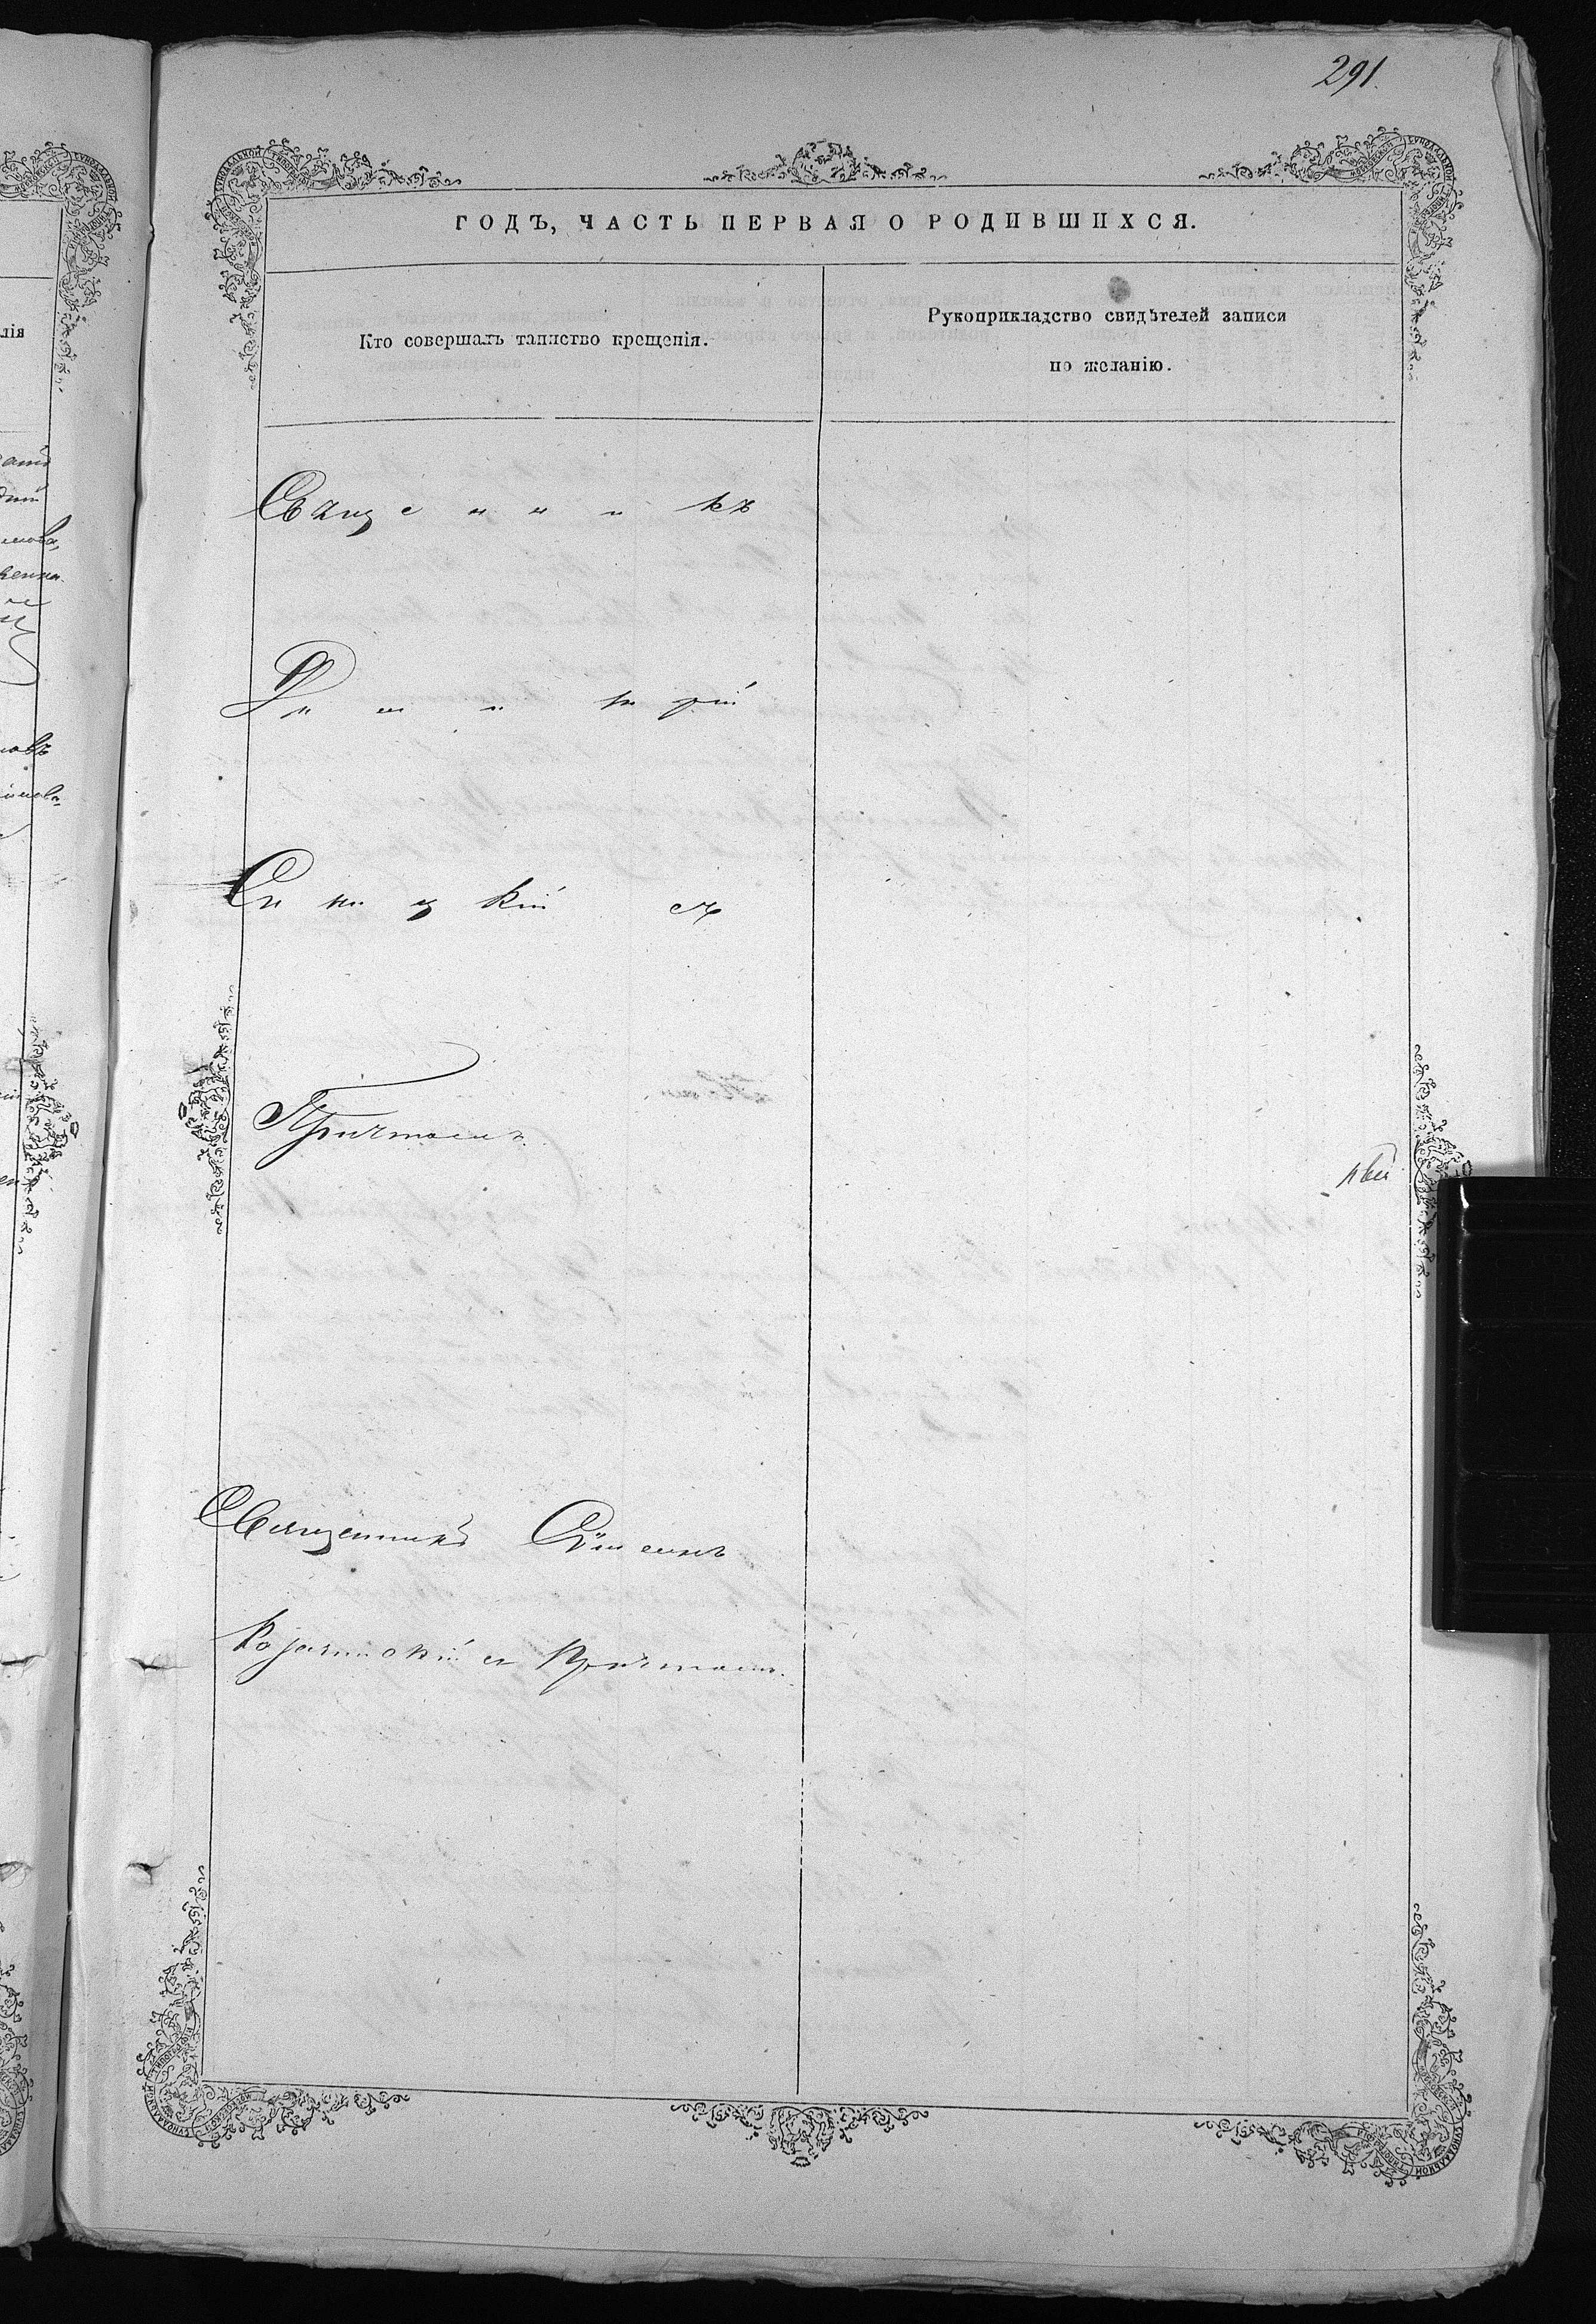 291.
ГОДЪ, ЧАСТЬ ПЕРВАЯ О РОДИВШИХСЯ.
Кто совершалъ таинство крещенія.
Рукоприкладство свидѣтелей записи
по желанію.
Священникъ
Димитрій
Синицкій съ
Причтомъ.
Священникъ Сѵмеонъ
съ Причтомъ.